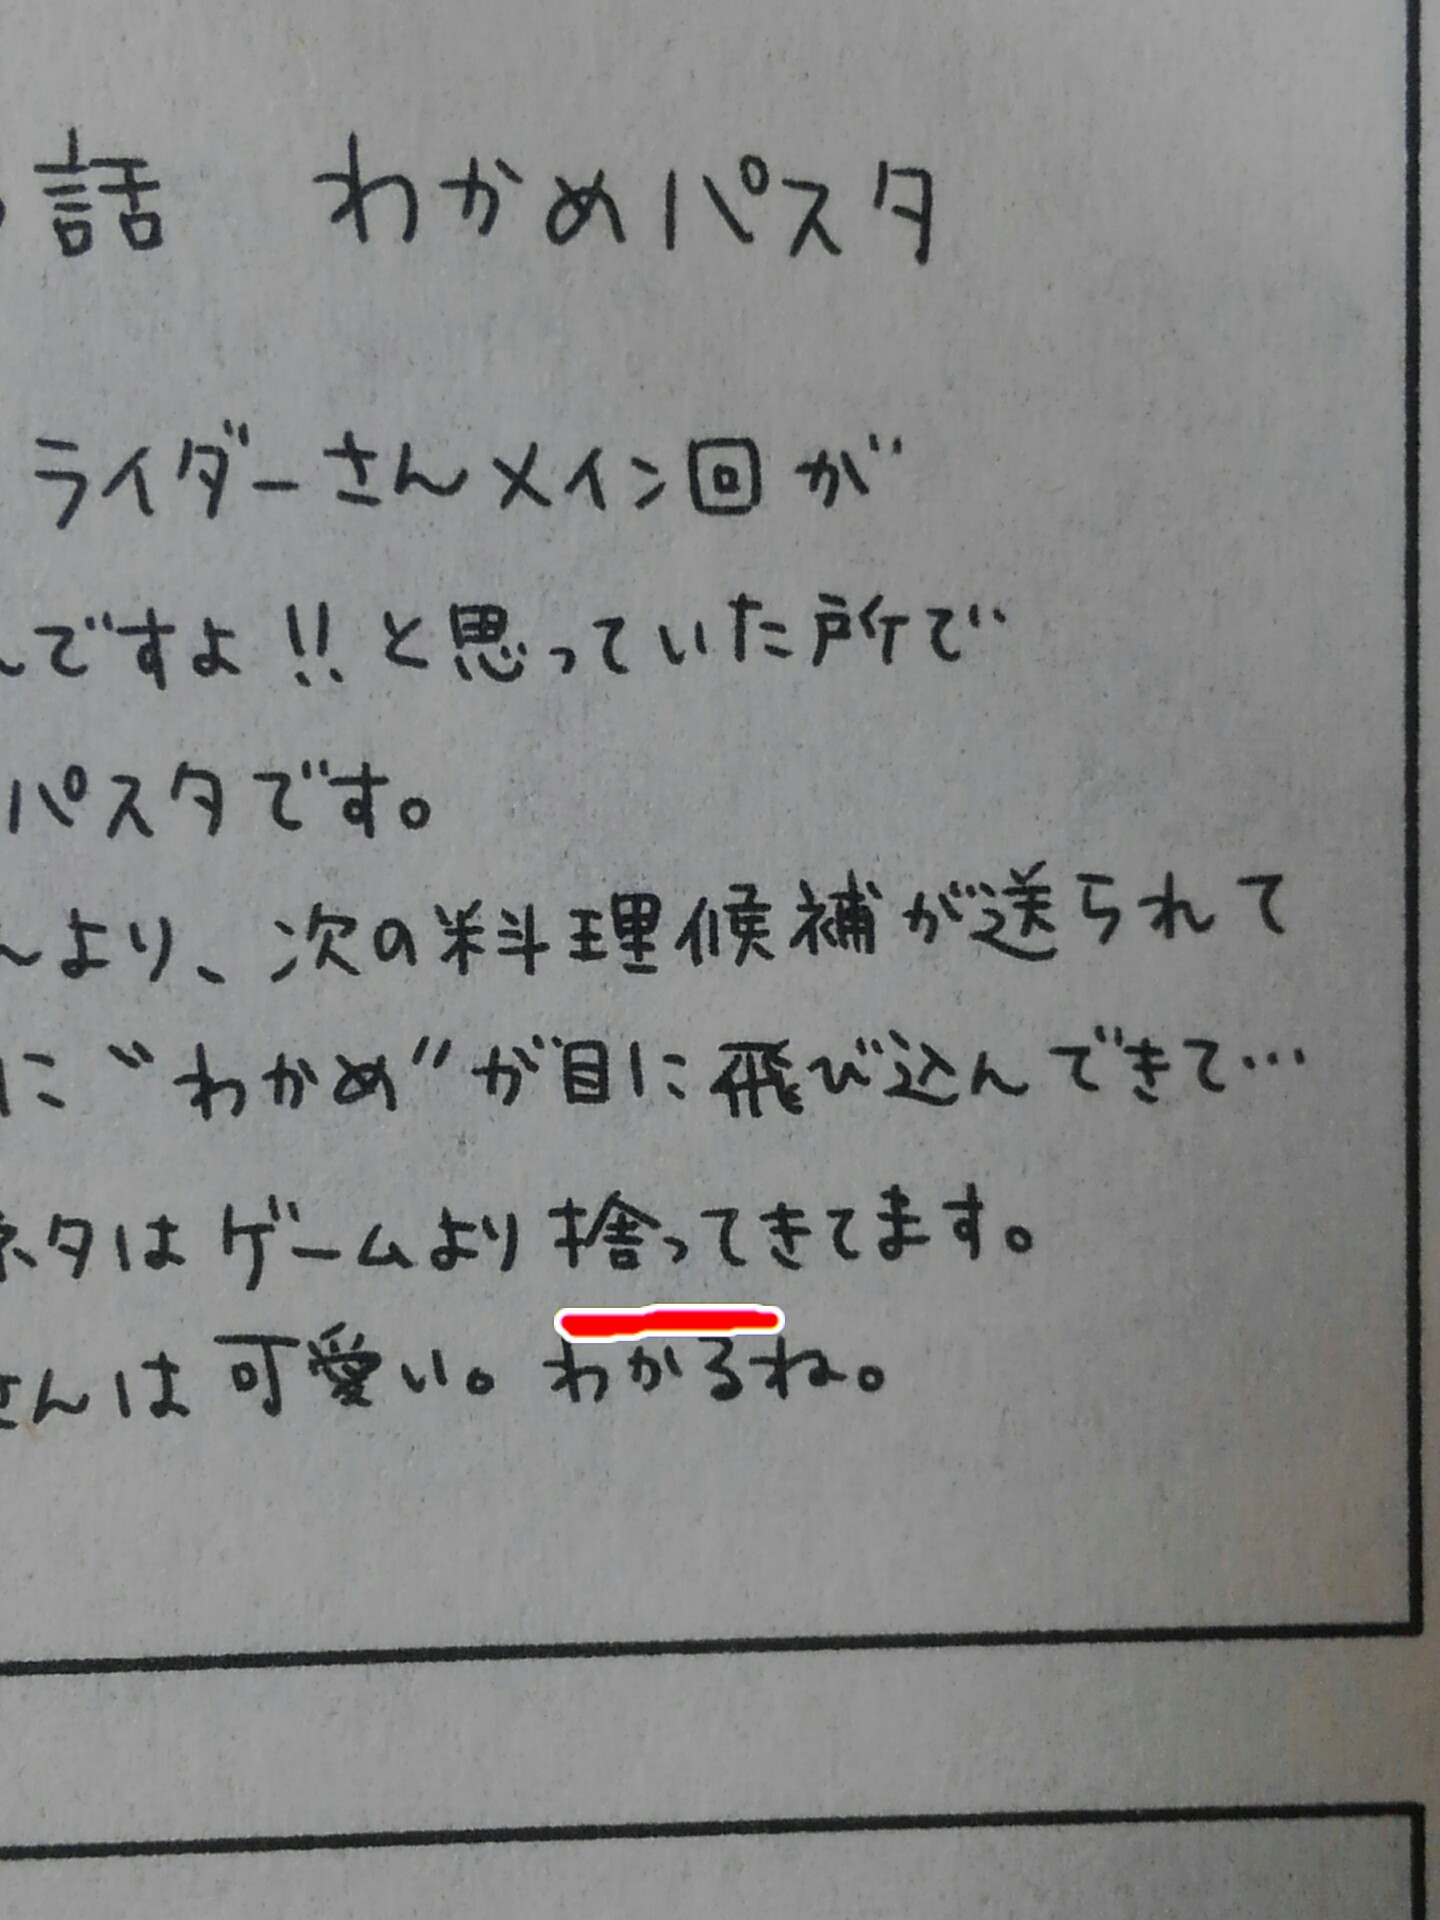 話 わかめパスタ
ライダーさんメイン回が
んですよ!!と思っていた所で
パスタです。
んより、次の料理候補が送られて
に“わかめ”が目に飛び込んできて…
ネタはゲームより捨ってきてます。
さんは可愛い。わかるね。